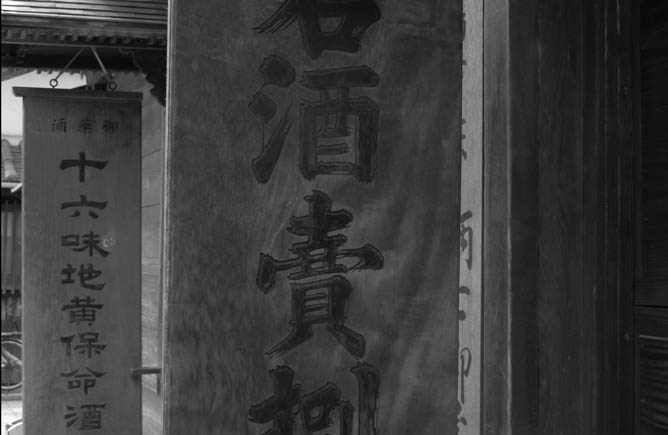 名酒賣捌
御薬酒
十六味地黄保命酒